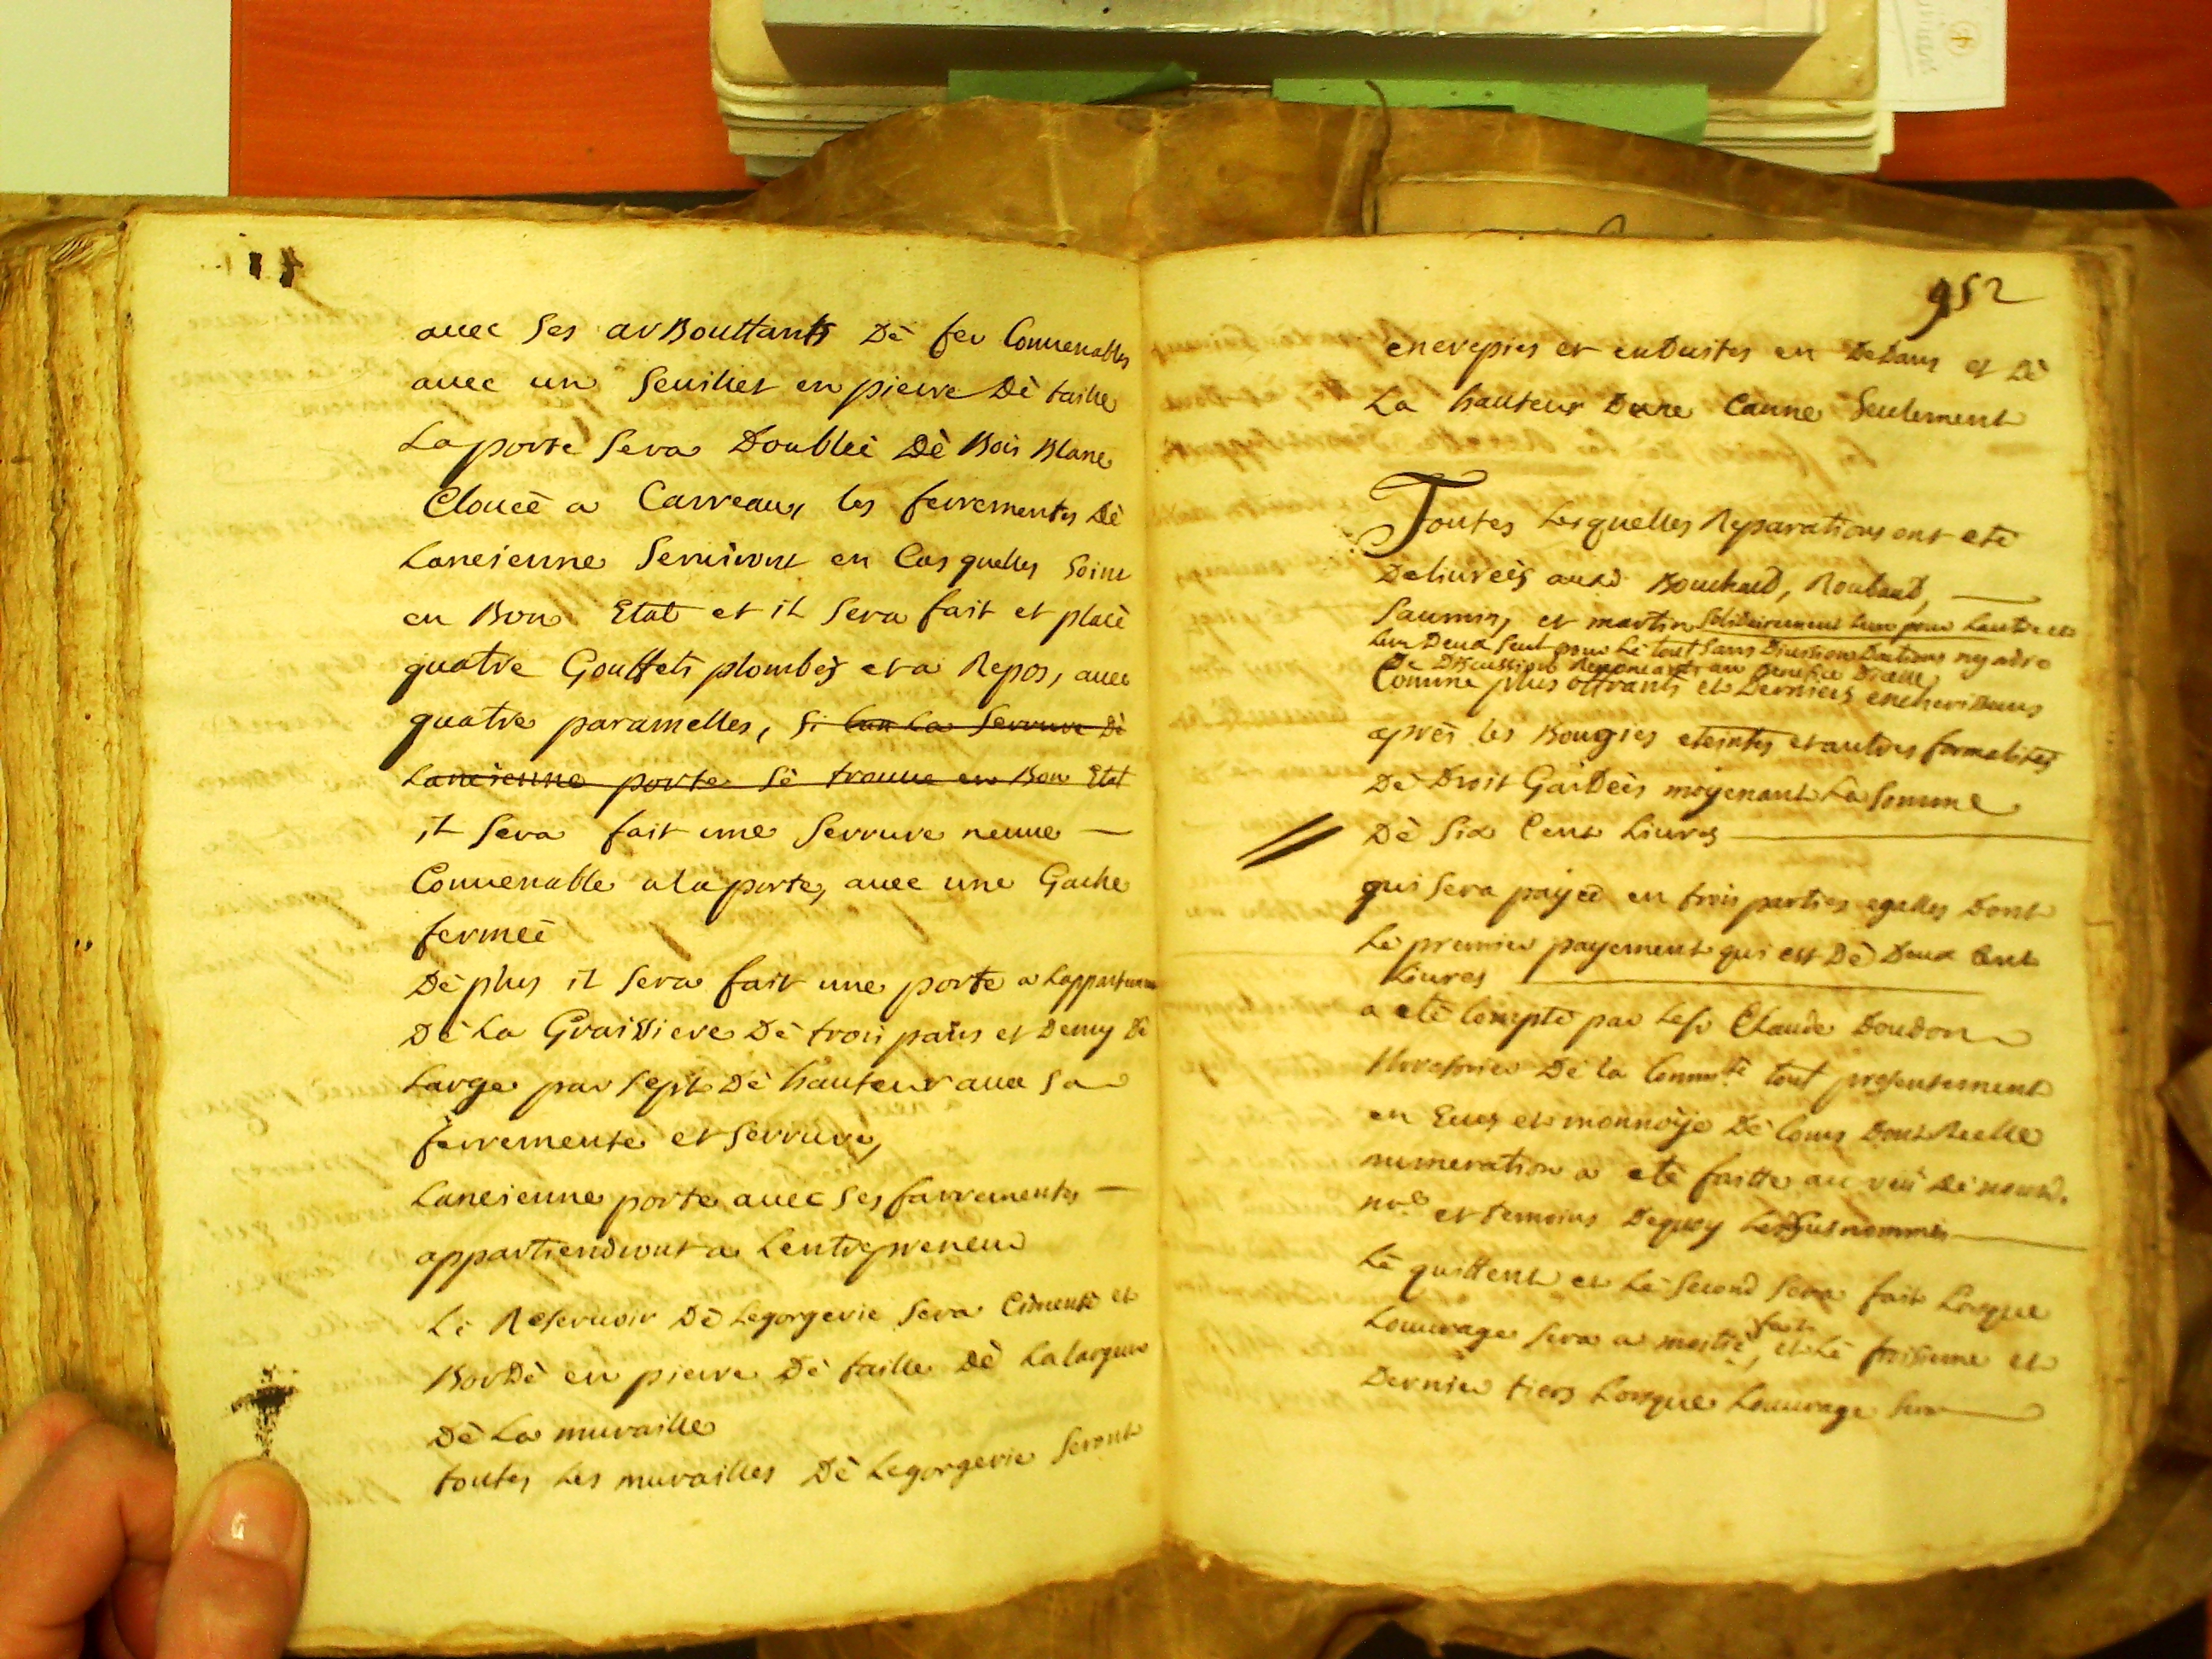 auec ses arBouttants Dè fer Conuenables
auec un Seuillet en pierre Dè taille
La porte Sera Doubleè Dè Bois Blanc
Cloueè a Carreaux, les ferrements Dè
Lancienne Seruiront en Cas quelles Soint
en Bon Etat et il Sera fait et placè
quatre Gouffets plombès et a Repos, auec
quatre paramelles, Si La Serrure Dè
Lancienne porte Sè trouue en Bon Etat
il Sera fait une Serrure neuue —
Conuenable a la porte, auec une Gache
fermeè
Dè plus il Sera fait une porte a Lappartement
Dè La Graissiere Dè trois pans et Demy Dè
Large par Sept Dè hauteur auec Sa
ferremente et Serrure,
Lancienne porte auec Ses farrementes —
appartiendront a Lentrepreneur
Lè Reseruoir Dè Legorgerie Sera Cimentè et
Bordè en pierre Dè taille Dè La largeur
Dè La muraille
toutes Les murailles Dè Legorgerie Seront
952
encrepies et enduites en Dedans et Dè
La hauteur Dune Canne Seulement
Toutes Lesquelles Reparations ont etè
Deliureès auxd Bouchard, Roubaud, —
Saumin, et martin Solidairement Lun pour Lautre et
Lun Deux Seul pour Lè tout Sans Diuision Dactions ny ordre
De Discussion Renonceant au Benefice Dicelle
Comme plus offrants et Derniers encherisseurs
après les Bougies eteintes et autres formalites
Dè Droit Gardeès moyenant La Somme
Dè Six Cent Liures —
qui Sera payeè en trois parties egalles Dont
Le premier payement qui est Dè Deux Cent
Liures —
a etè Comptè par Le Sr Claude Doudon
thresorier Dè la Commtè tout presentement
en Ecus et monnoye Dè Cours Dont Reelle
numeration a etè faitte au veü Dè nousd.
nre et temoins Dequoy Les Susnommès —
Lè quittent et Lè Second Sera fait Lorsque
Louurage Sera a moitiè fait, et Lè troisieme et
Dernier tiers Lorsque Louurage Sera —